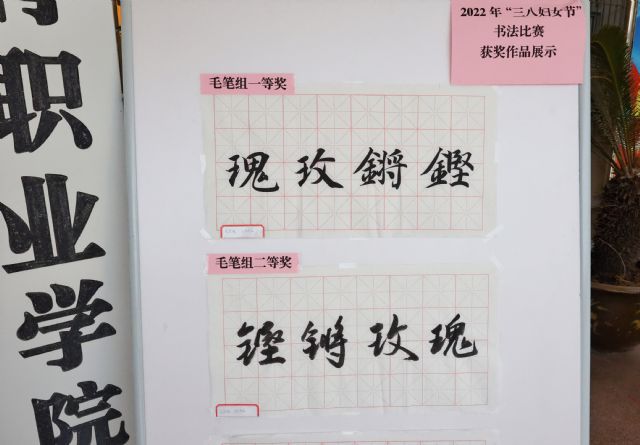 职业学院
2022年“三八妇女节”
书法比赛
获奖作品展示
毛笔组一等奖
鏗鏘玫瑰
毛笔组二等奖
鏗鏘玫瑰